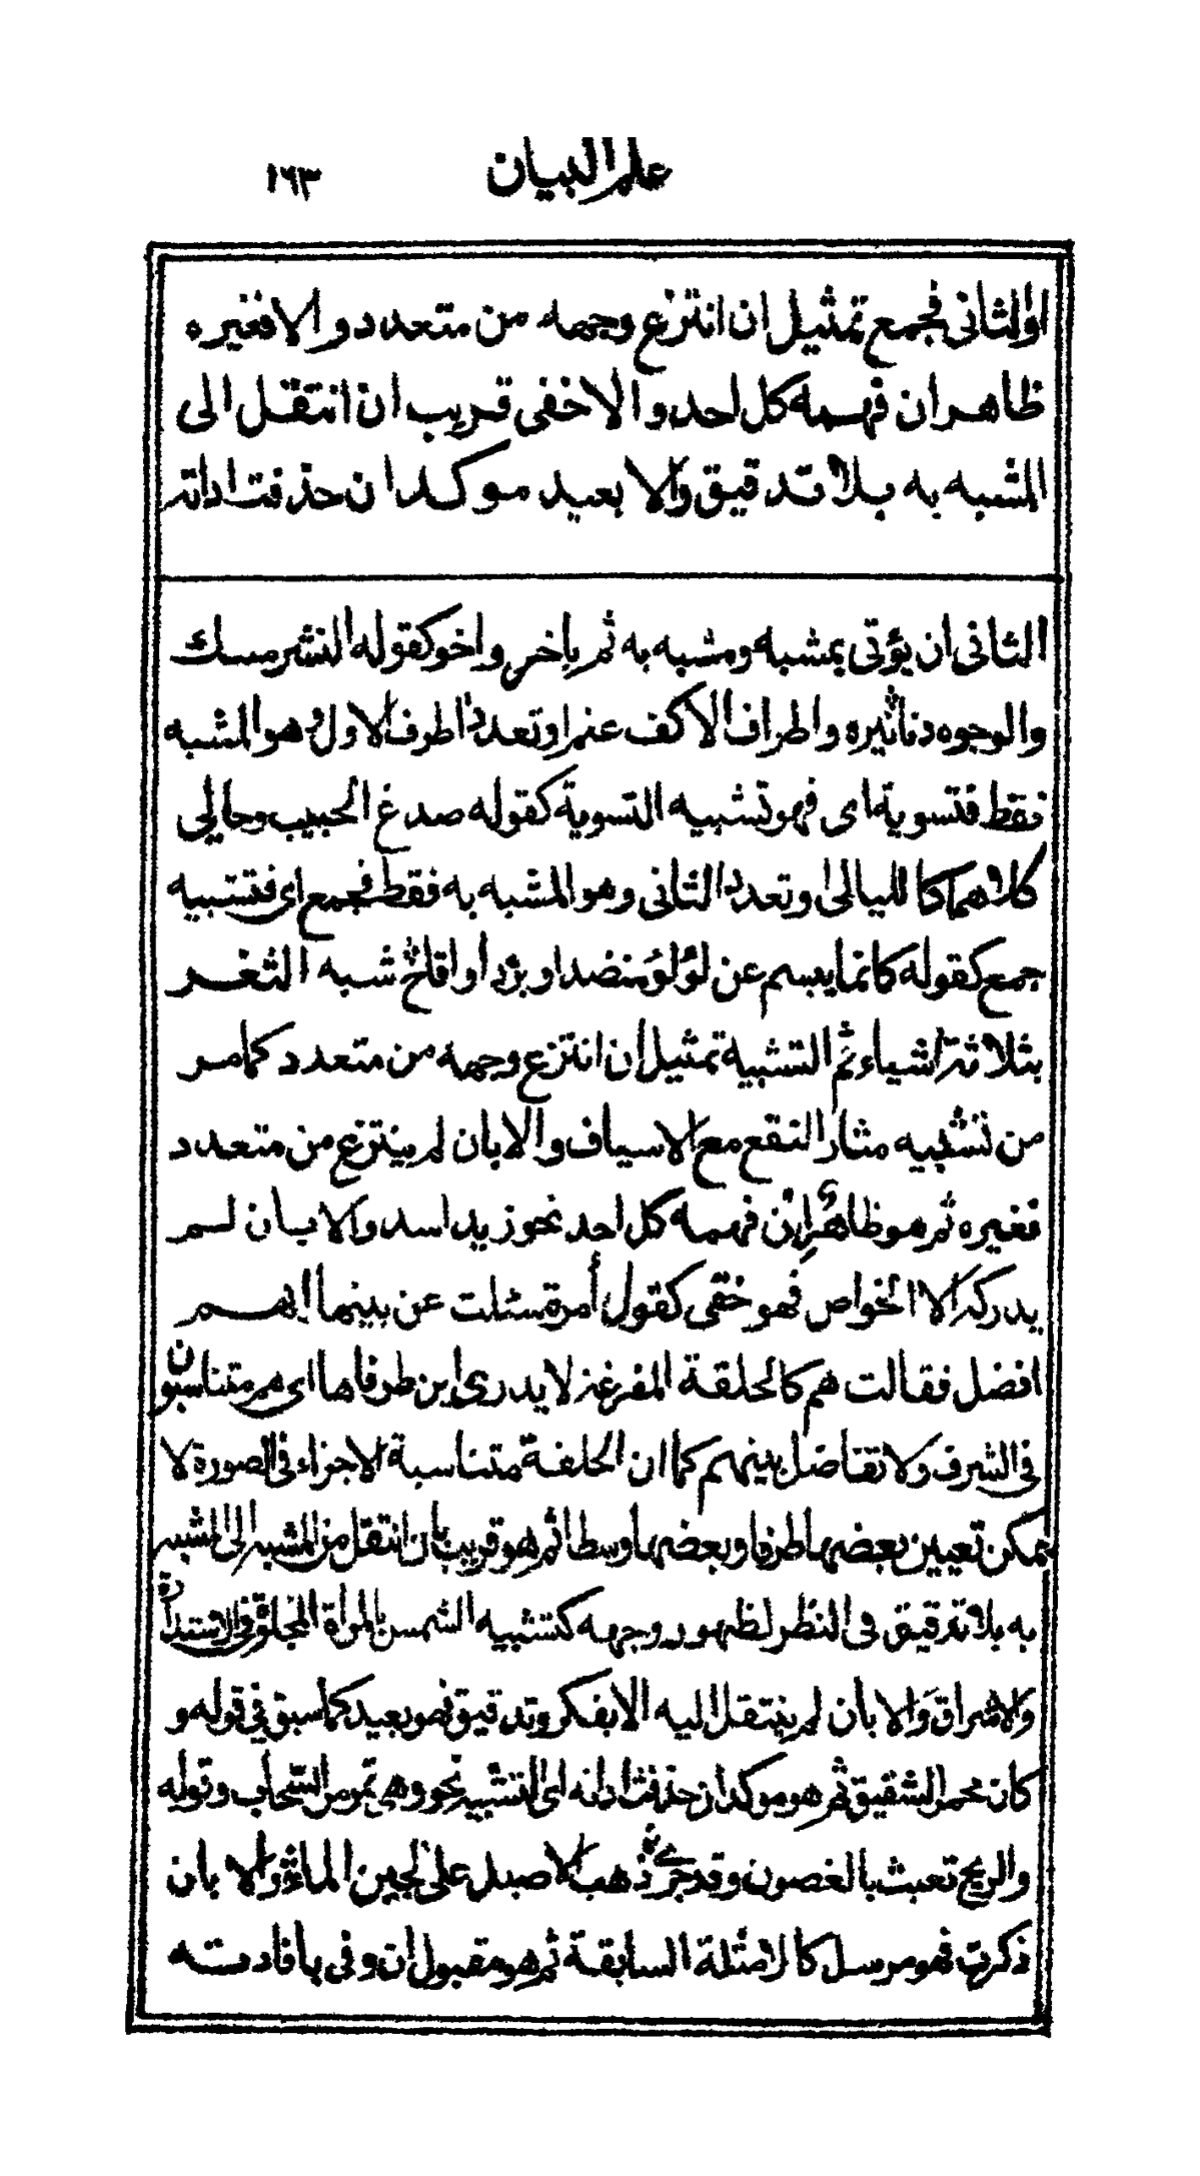 علم البيان ١٦٣
او الثانى فجمع تمثيل ان انتزع وجهه من متعدد والا فغيره
ظاهر ان فهمه كل احد والا خفى قريب ان انتقل الى
المشبه به بلا تدقيق والا بعيد موكد ان حذفت اداته
الثانى ان يؤتى بمشبه ومشبه به ثم باخر واخر كقوله النشر مسك
والوجوه دنانيره واطراف الاكف عنم او تعدد طرف الاول وهو المشبه
فقط فتسوية اى فهو تشبيه التسوية كقوله صدغ الحبيب وحالي
كلاهما كا لليالى او تعدد الثانى وهو المشبه به فقط فجمع اى فتشبيه
جمع كقوله كانما يبسم عن لؤلؤ منضد او برد او اقاح شبه الثغر
بثلاثة اشياء ثم التشبيه تمثيل ان انتزع وجهه من متعدد كما مر
من تشبيه مثار النقع مع الاسياف والا بان لم ينتزع من متعدد
فغيره ثم هو ظاهر ان فهمه كل احد نحو زيد اسد والا بان لم
يدركه الا الخواص فهو خفى كقول أمرة سئلت عن بينها ايهم
افضل فقالت هم كالحلقة المفرغة لا يدرى اين طرفاها اى هم متناسبون
فى الشرف ولا تفاضل بينهم كما ان الحلقة متناسبة الاجزاء فى الصورة لا
يمكن تعيين بعضها طرفا وبعضها وسطا ثم هو قريب بان انتقل من المشبه الى المشبه
به بلا تدقيق فى النظر لظهور وجهه كتشبيه الشمس بالمرأة المجلوة فى الاستدارة
والاشراق والا بان لم ينتقل اليه الا بفكر وتدقيق فهو بعيد كما سبق فى قوله و
كان محمر الشقيق ثم هو موكد ان حذفت اداته اى التشبيه نحو وهى تمر مر السحاب وقوله
والريح تعبث بالغصون وقد جرى ذهب الاصيل على لجين الماء والا بان
ذكرت فهو مرسل كا لامثلة السابقة ثم هو مقبول ان وفى بافادته